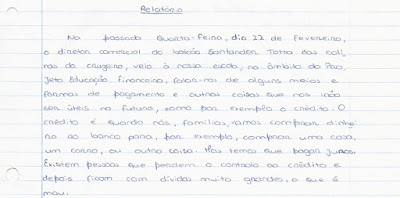 Relatório
Na passada Quarta-Feira, dia 22 de Fevereiro,
o diretor comercial do balcão Santander Totta das coli-
nas do cruzeiro, veio à nossa escola, no âmbito do Pro-
jeto Educação Financeira, falar-nos de alguns meios e
formas de pagamento e outras coisas que nos irão
ser úteis no futuro, como por exemplo o crédito. O
crédito é quando nós, famílias, vamos comprar dinhei-
ro ao banco para, por exemplo, comprar uma casa,
um carro, ou outra coisa. Mas temos que pagar juros.
Existem pessoas que perdem o controlo ao crédito e
depois ficam com dívidas muito grandes, o que é
mau.